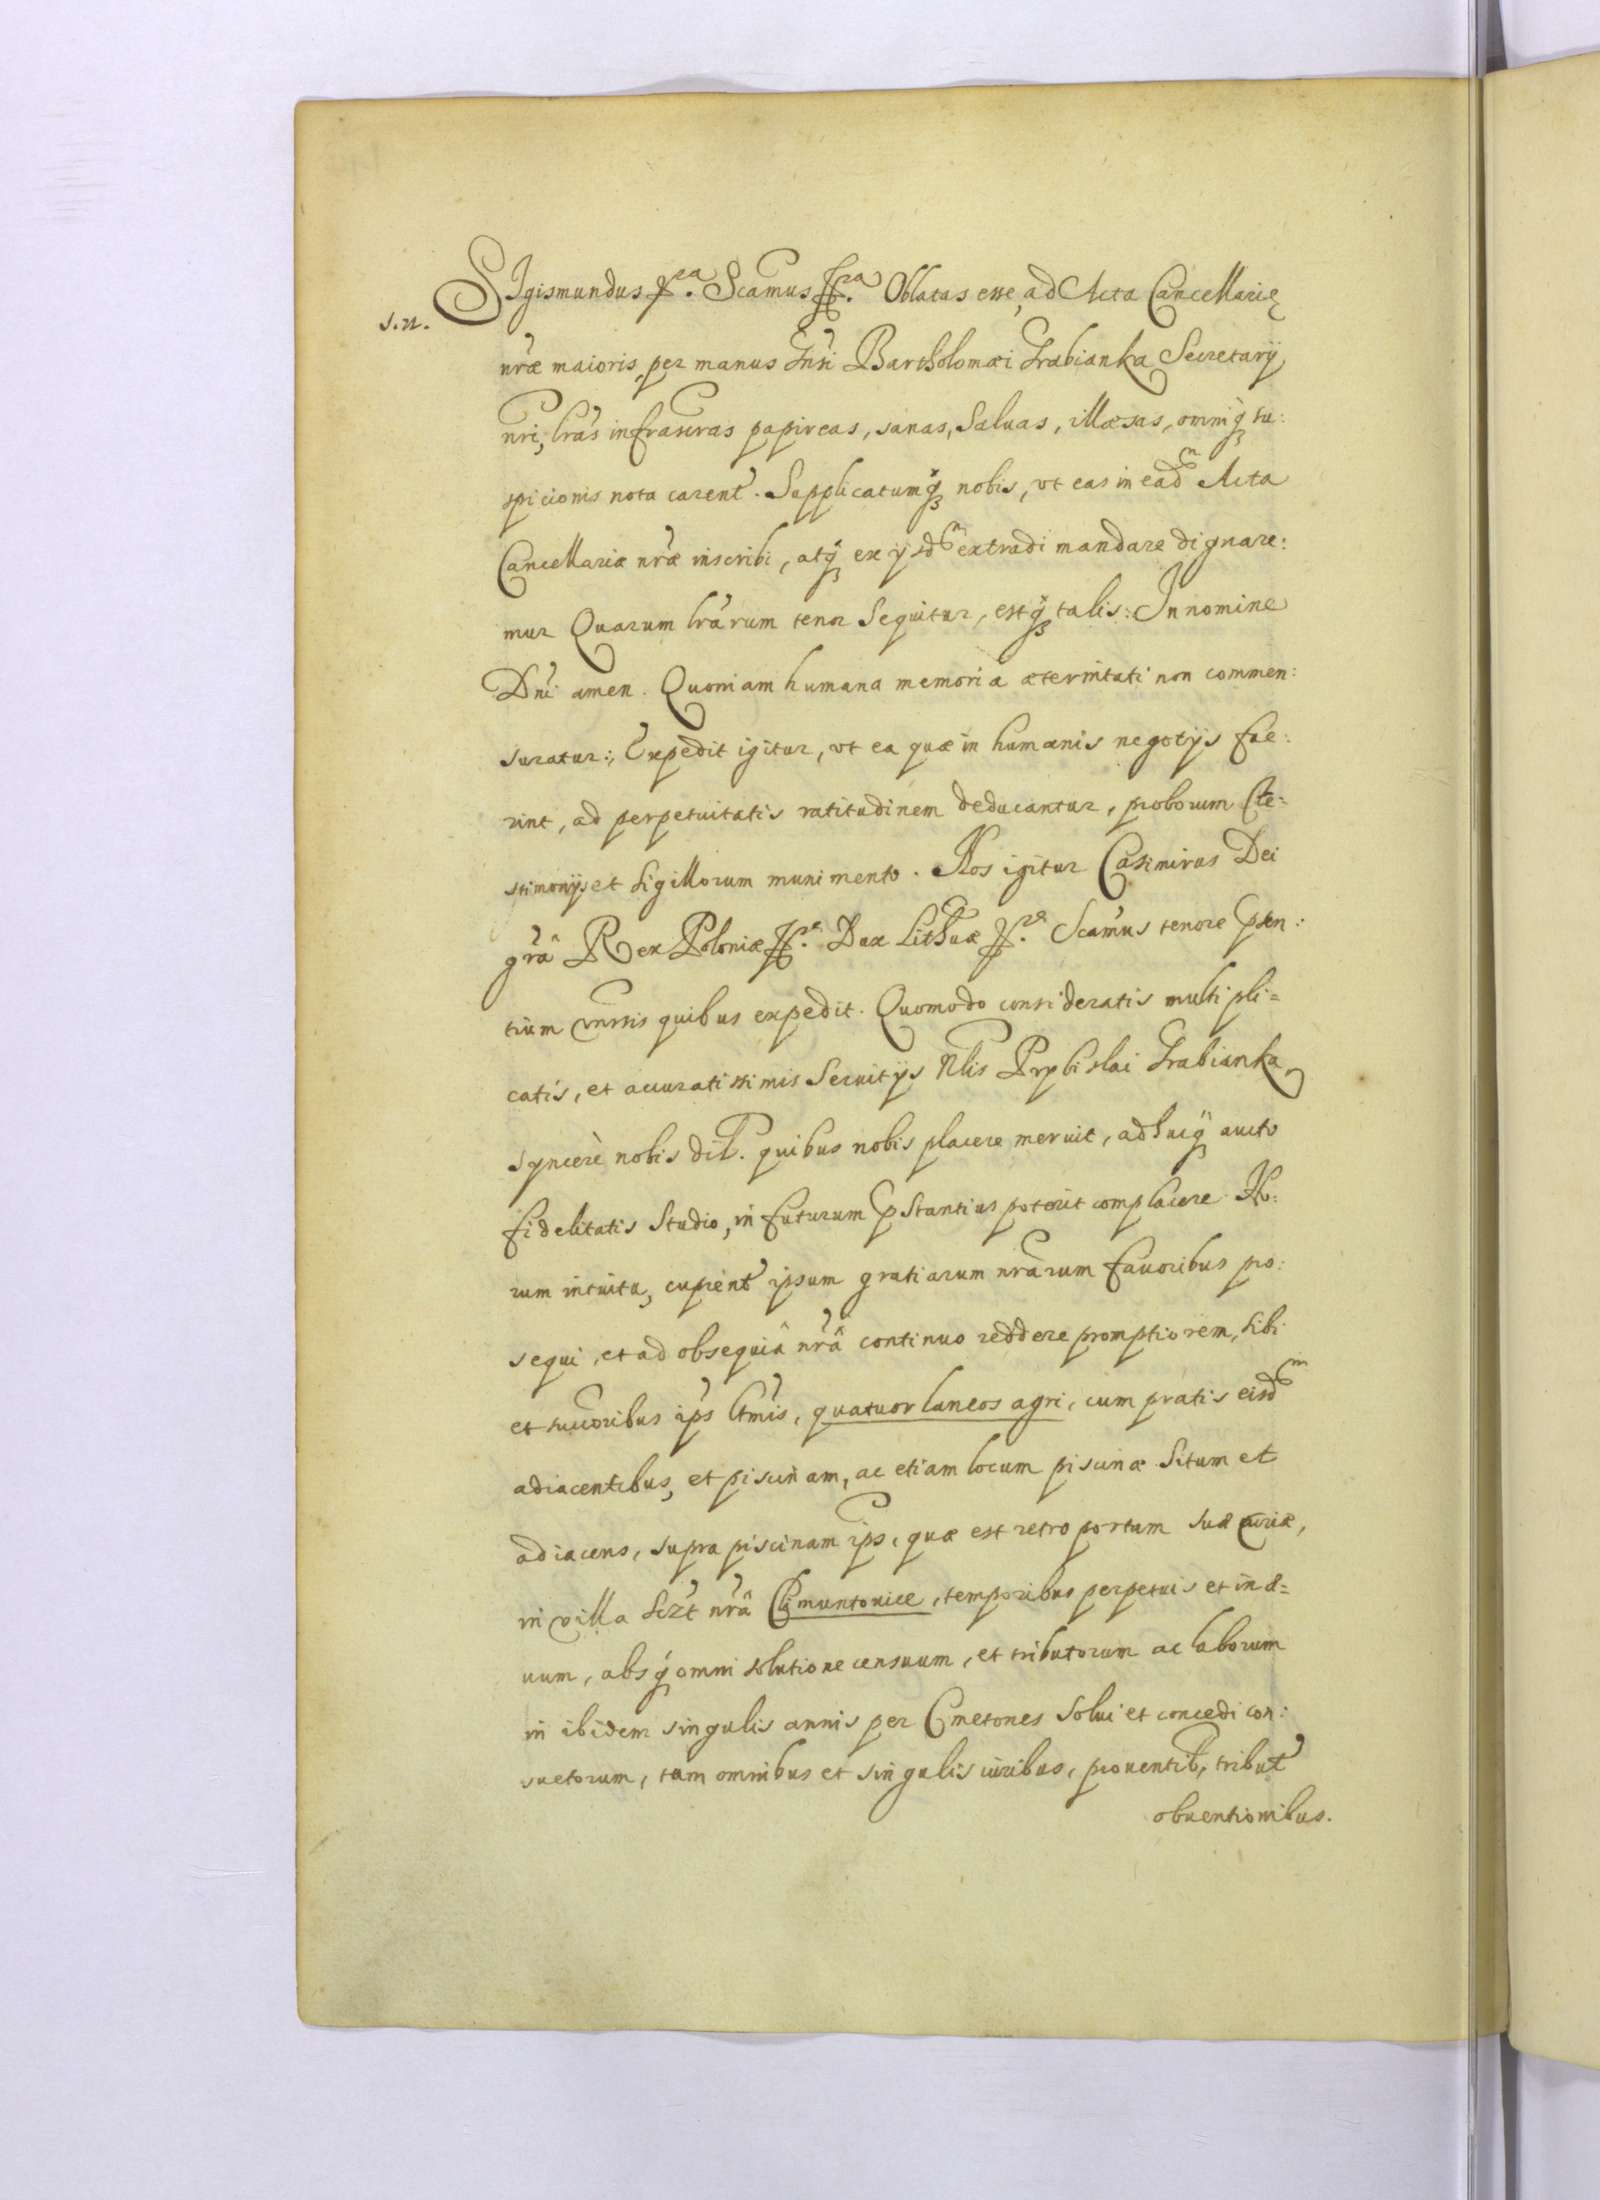 SIgismundus etca. Scamus etcra. Oblatas esse, ad Acta Cancellariæ
s.n.
nræ maioris, per manus Gnsi Bartholomæi Grabianka Secretarij
nri, lras infrascras papireas, sanas, Saluas, illæsas, omniq3 su:
spicionis nota carent. Supplicatumq3 nobis, vt eas in eadm Acta
Cancellariæ nræ inscribi, atq3 ex ijsdm extradi mandare dignare:
mur Quarum lrarum tenor Sequitur, estq3 talis: In nomine
Dni amen. Quoniam humana memoria æternitati non commen:
suratur:, Expedit igitur, vt ea quæ in humanis negotijs fue:
rint, ad perpetuitatis ratitudinem deducantur, proborum te:
stimonijs et Sigillorum munimento. Nos igitur Casimirus Dei
grâ Rex Poloniæ etc. Dux Lithuæ etc. Scamus tenore præn:
tium vnrsis quibus expedit. Quomodo consideratis multipli=
catis, et accuratissimis Seruitijs Nlis Przbislai Grabianka,
syncerè nobis dil. quibus nobis placere meruit, adhucq3 aucto
fidelitatis Studio, in futurum pstantius poterit complacere. Ho:
rum intuitu, cupient ipsum gratiarum nrarum fauoribus pro:
sequi, et ad obsequiâ nrâ continuo reddere promptiorem, Sibi
et succoribus ips ltmis, quatuor laneos agri, cum pratis eisdm
adiacentibus, et piscinam, ac etiam locum piscinæ Situm et
adiacens, supra piscinam ips, quæ est retro portam suæ curiæ,
in villa Sczt nrâ Climuntouice, temporibus perpetuis et in æ=
uum, absq3 omni solutione censuum, et tributorum ac laborum
in ibidem singulis annis per Cmetones Solui et concedi con:
suetorum, tam omnibus et singulis iuribus, prouentib, tribut
obuentionibus.